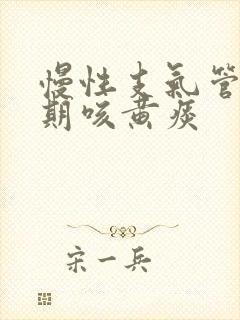 慢性支氣管
期咳黄痰
宋一兵